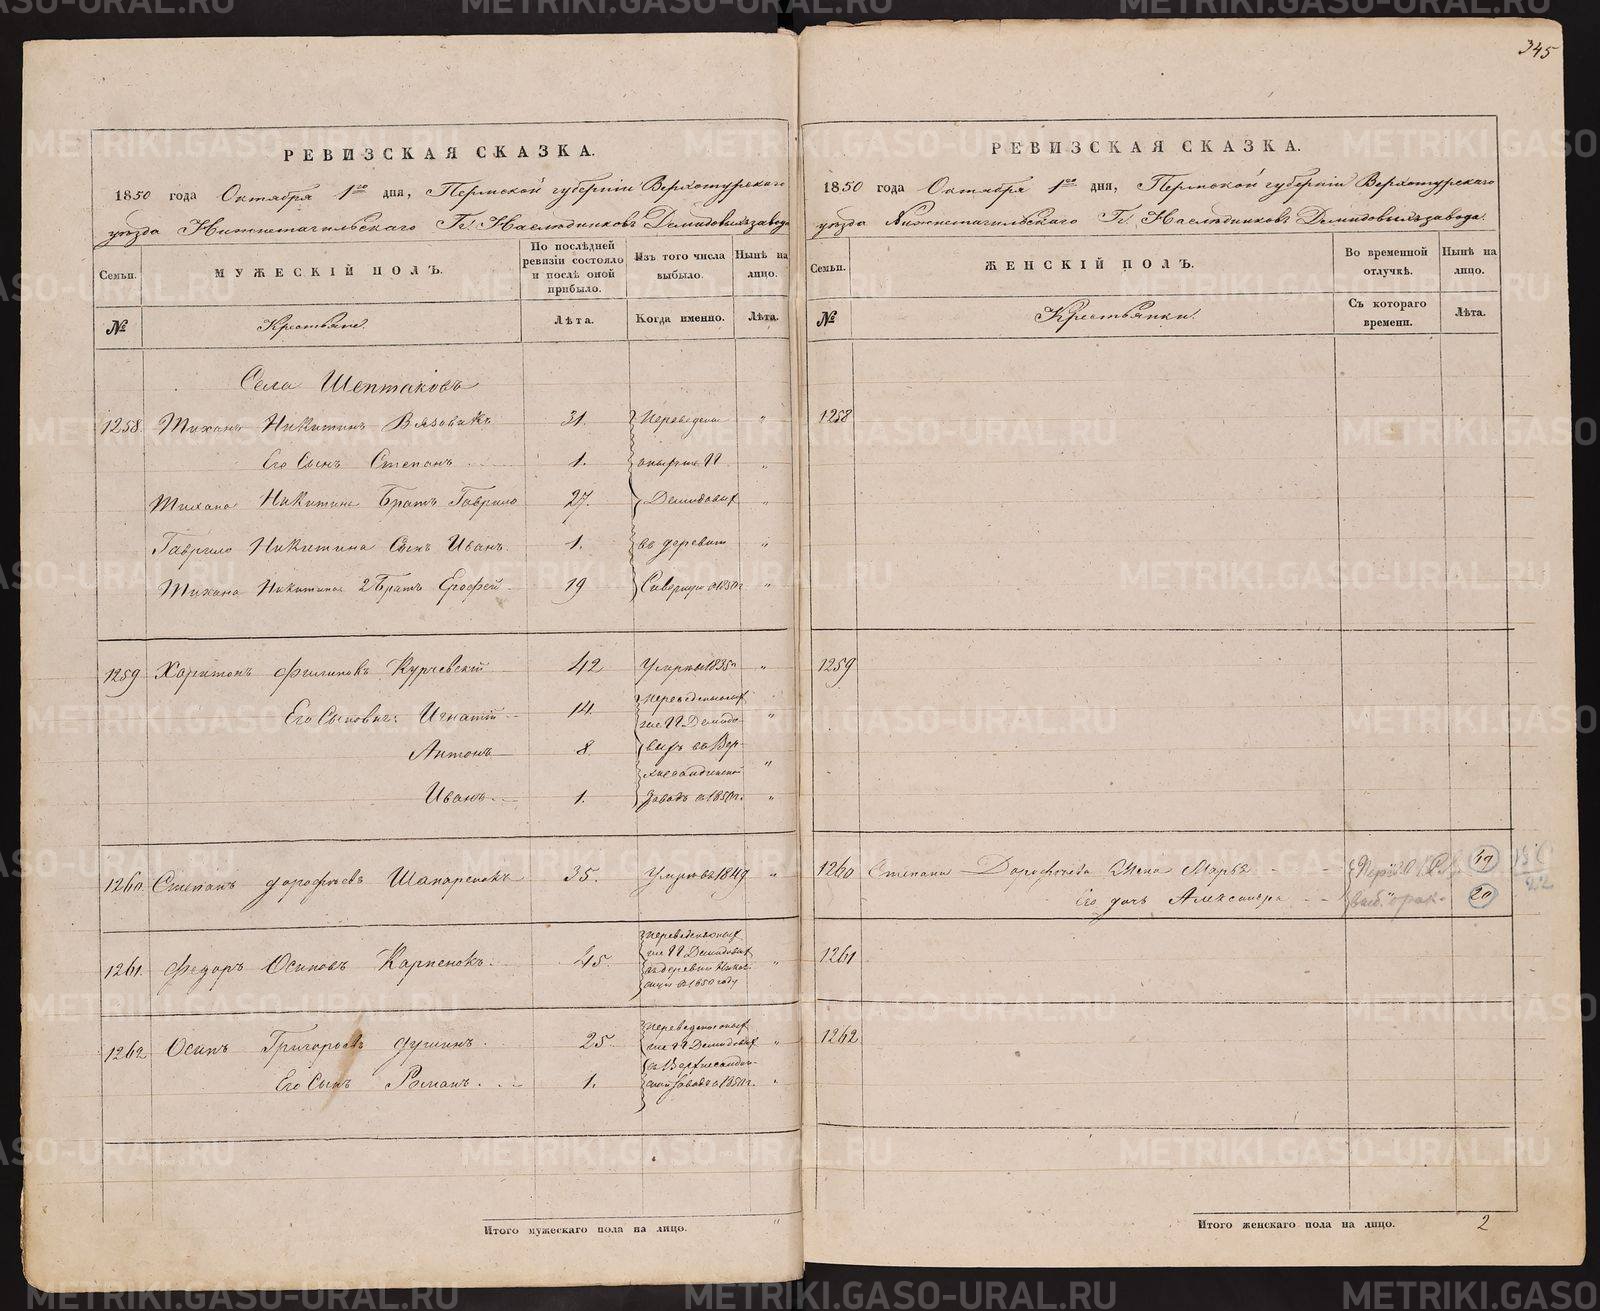 345
РЕВИЗСКАЯ СКАЗКА.
1850 года Октября 1го дня, Пермской губерніи Верхотурскаго
уѣзда Нижнетагильскаго Гг. Наслѣдниковъ Демидовыхъ завода
Семьи.
МУЖЕСКІЙ ПОЛЪ.
По послѣдней ревизіи состояло и послѣ оной прибыло.
Изъ того числа выбыло.
Нынѣ на лицо.
№
Крестьяне.
Лѣта.
Когда именно.
Лѣта.
Села Шептаковъ
1258. Тихонъ Никитинъ Вязовикъ 31. Переведены "
Его Сынъ Степанъ 1. "
Тихона Никитина Братъ Гаврило 27. Демидовых "
Гаврило Никитина Сынъ Иванъ. 1. въ деревни "
Тихона Никитина 2 Братъ Ерофей 19 "
1259 Харитонъ Филиповъ Курчевскій 42 Умре въ 1835 г "
Его Сыновья: Игнатій 14. Переведены "
гг Демидо-
Антонъ 8. выхъ въ Вер-
"
Иванъ 1. Заводъ въ 1850 г. "
1260. Степанъ Дорофѣевъ Шапаренокъ 35. Умре въ 1849 "
1261. Федоръ Осиповъ Карпенокъ. 45. Переведен
гг Демидовых
въ деревню "
въ 1850 году
1262 Осипъ Григорьевъ Душинъ. 25. Переведен
гг Демидовых "
Его Сынъ Романъ. 1. Заводъ въ 1850 г. "
Итого мужескаго пола на лицо. "
РЕВИЗСКАЯ СКАЗКА.
1850 года Октября 1го дня, Пермской губерніи Верхотурскаго
уѣзда Нижнетагильскаго Гг. Наслѣдниковъ Демидовыхъ завода.
Семьи.
ЖЕНСКІЙ ПОЛЪ.
Во временной отлучкѣ.
Нынѣ на лицо.
№
Крестьянки.
Съ котораго времени.
Лѣта.
1258
1259
1260 Степана Дорофѣева Жена Марья 49
Его дочь Александра 20
22
1261
1262
Итого женскаго пола на лицо. 2
METRIKI.GASO-URAL.RU